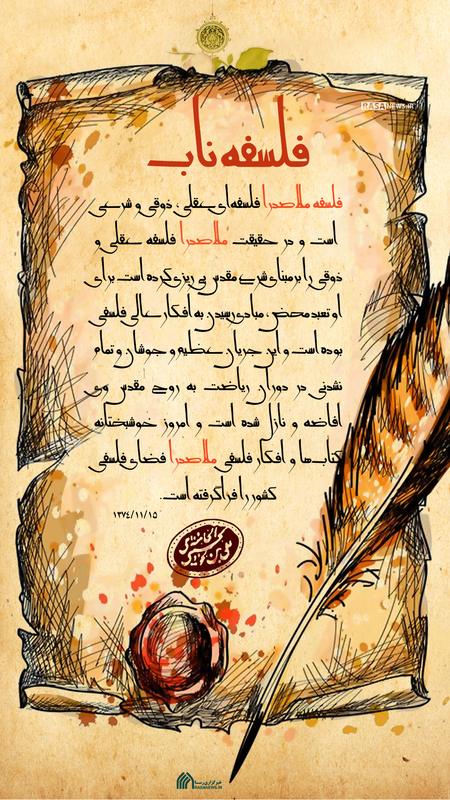 RASANEWS.IR
فلسفه ناب
فلسفه ملاصدرا فلسفه‌ای عقلی، ذوقی و شرعی
است و در حقیقت ملاصدرا فلسفه عقلی و
ذوقی را بر مبنای شرع مقدس پی ریزی کرده است. برای
او تعبد محض، مبادی رسیدن به افکار عالی فلسفی
بوده است و این جریان عظیم و جوشان و تمام
نشدنی در دوران ریاضت به روح مقدس وی
افاضه و نازل شده است و امروز خوشبختانه
کتاب‌ها و افکار فلسفی ملاصدرا فضای فلسفی
کشور را فرا گرفته است.
۱۳۷۴/۱۱/۱۵
خبرگزاری رسا
RASANEWS.IR